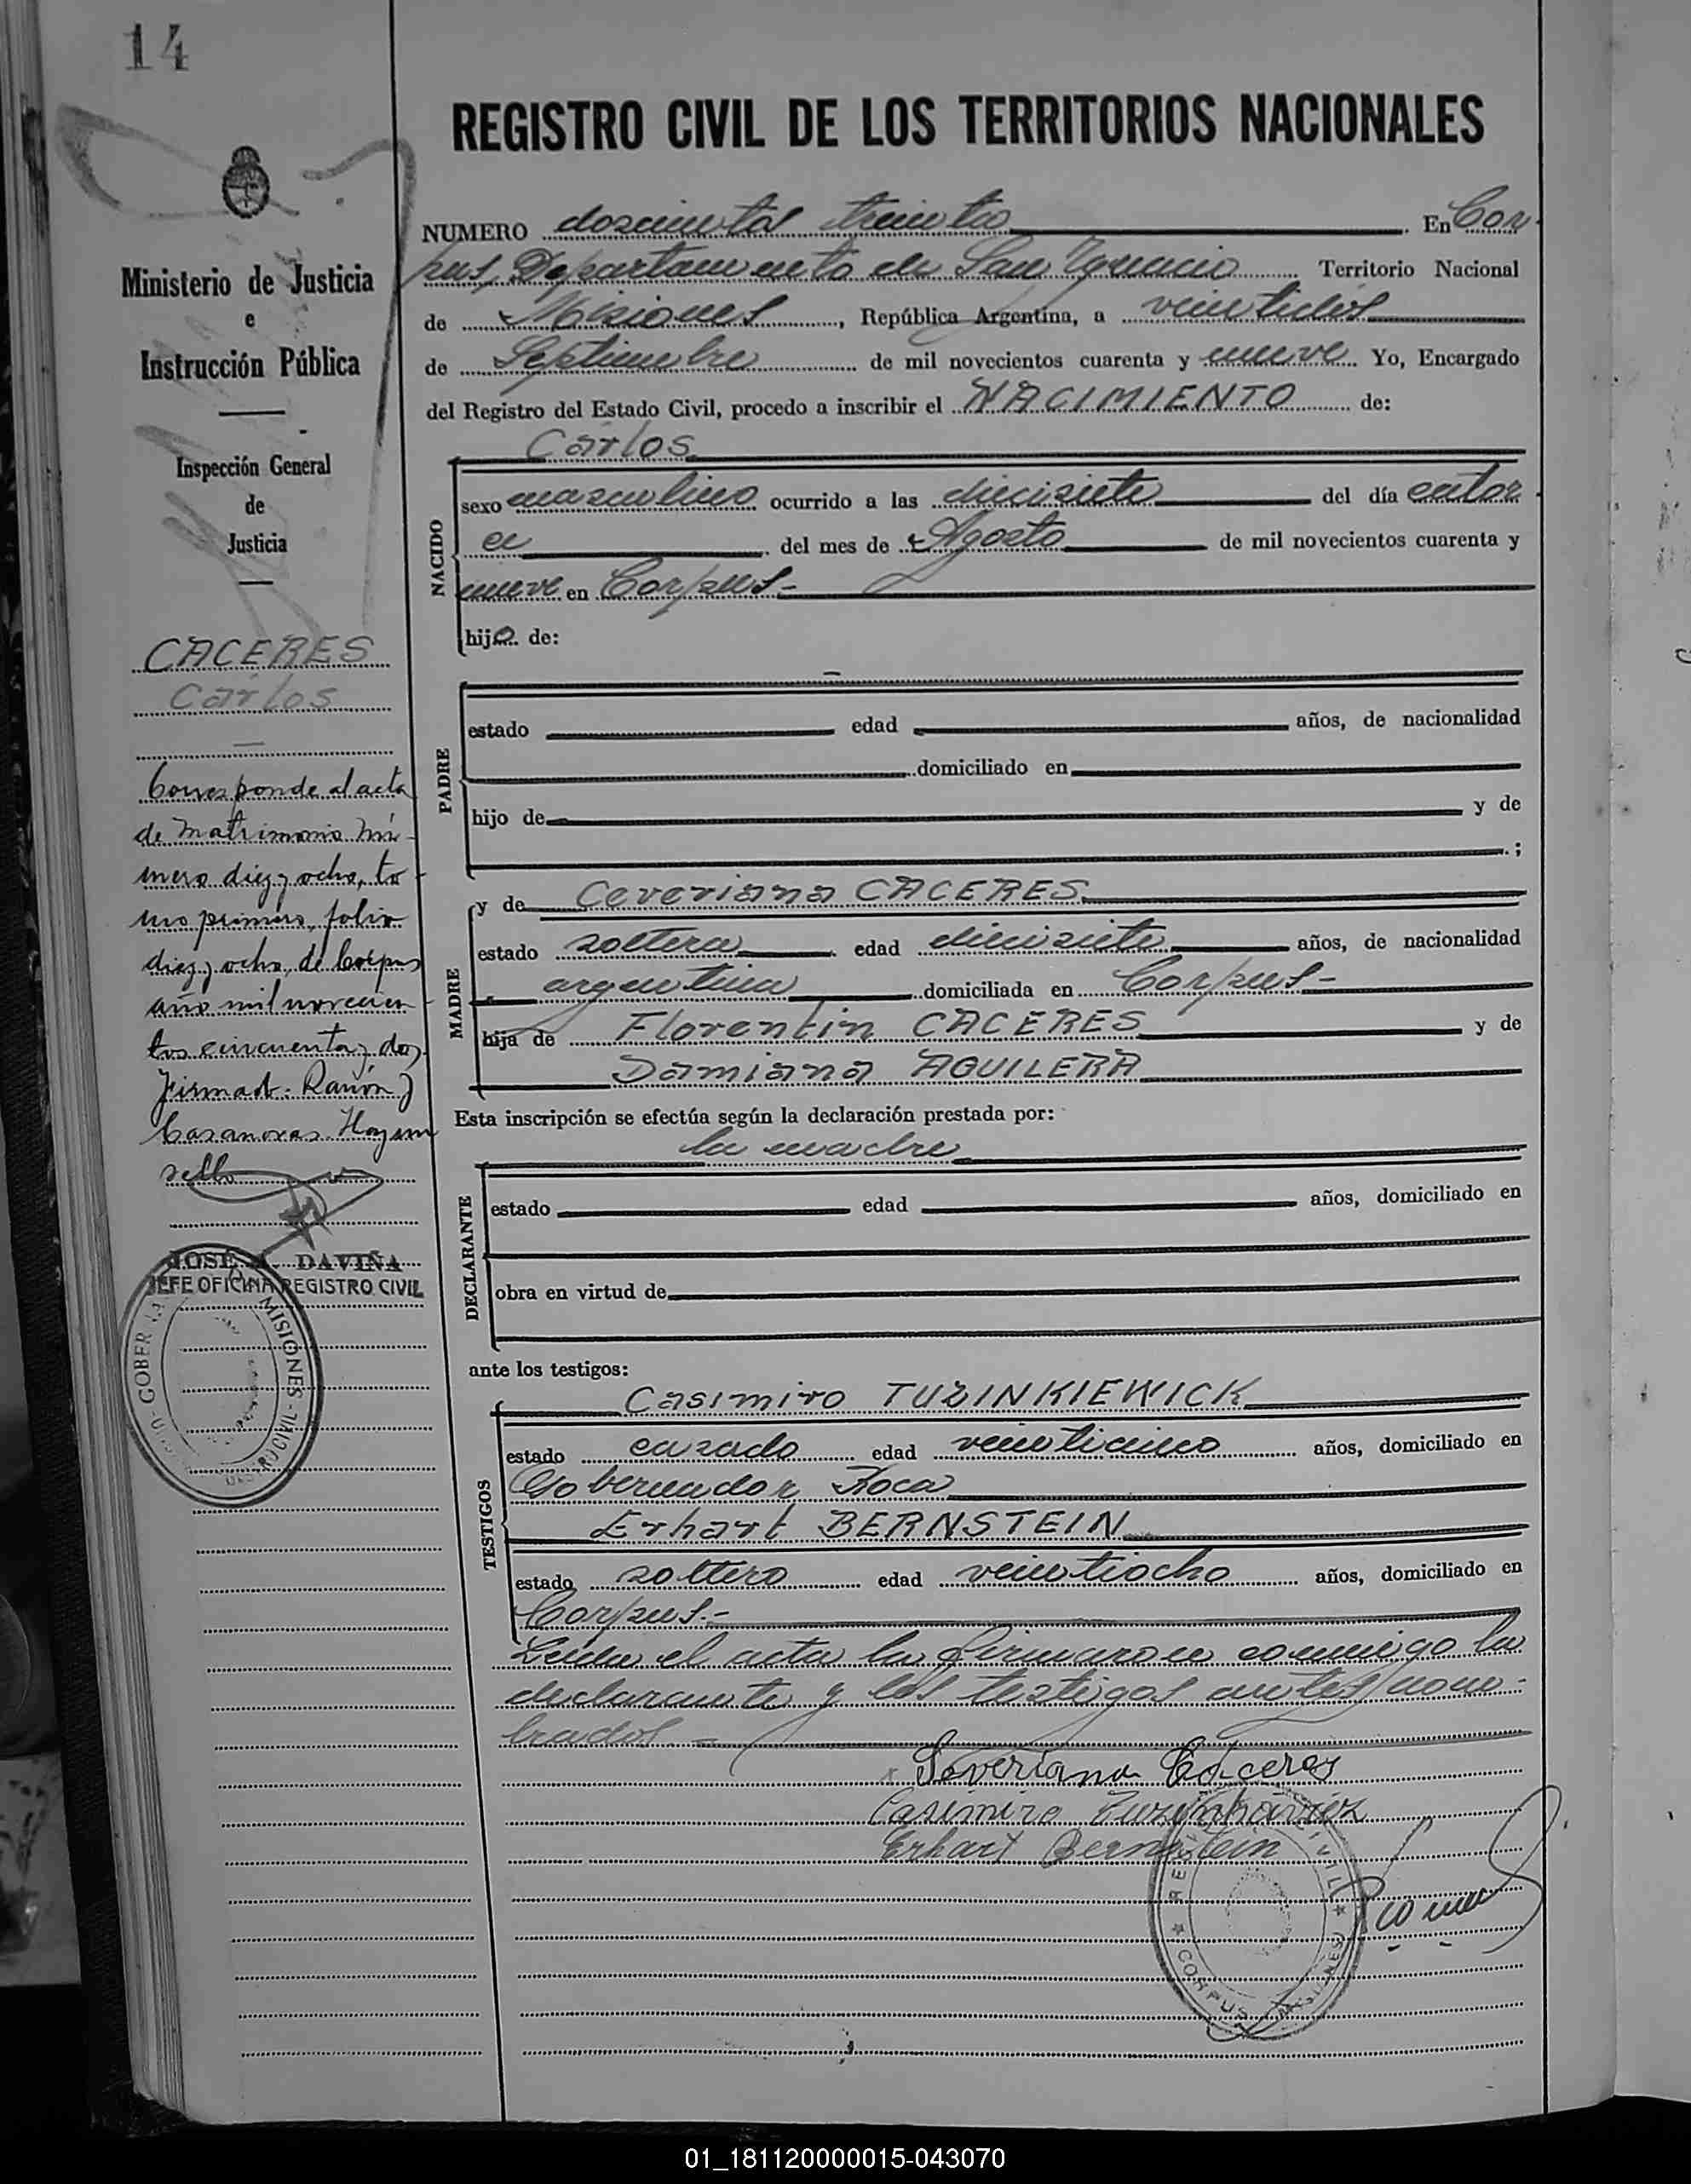 14
REGISTRO CIVIL DE LOS TERRITORIOS NACIONALES
Ministerio de Justicia
e
Instrucción Pública
Inspección General
de
Justicia
CACERES
Carlos
Corresponde al acta
de matrimonio nú-
mero diez y ocho, to-
mo primero, folio
diez y ocho, de Corpus
año mil novecien-
tos cincuenta y dos.
Firmado: Ramón J
Casanovas. Hay un
sello
JOSE A. DAVIÑA
JEFE OFICINA REGISTRO CIVIL
MISIONES
NUMERO doscientos treinta. En Cor-
pus, Departamento de San Ignacio Territorio Nacional
de Misiones, República Argentina, a veintidós
de Septiembre de mil novecientos cuarenta y nueve Yo, Encargado
del Registro del Estado Civil, procedo a inscribir el NACIMIENTO de:
Carlos
NACIDO
sexo masculino ocurrido a las diecisiete del día cator
ce del mes de Agosto de mil novecientos cuarenta y
nueve en Corpus-
hijo de:
PADRE
estado edad años, de nacionalidad
domiciliado en
hijo de y de
;
MADRE
y de Ceveriana CACERES
estado soltera edad diecisiete años, de nacionalidad
argentina domiciliada en Corpus-
hija de Florentin CACERES y de
Damiana AGUILERA
Esta inscripción se efectúa según la declaración prestada por:
la madre
DECLARANTE
estado edad años, domiciliado en
obra en virtud de
ante los testigos:
TESTIGOS
Casimiro TUZINKIEWICK
estado casado edad veinticinco años, domiciliado en
Gobernador Roca
Erhart BERNSTEIN
estado soltero edad veintiocho años, domiciliado en
Corpus.-
Leida el acta la firmaron conmigo la
declarante y los testigos antes nom-
brados.-
Severiana Cáceres
Casimiro
Erhart Bernstein
CORPUS
01_181120000015-043070